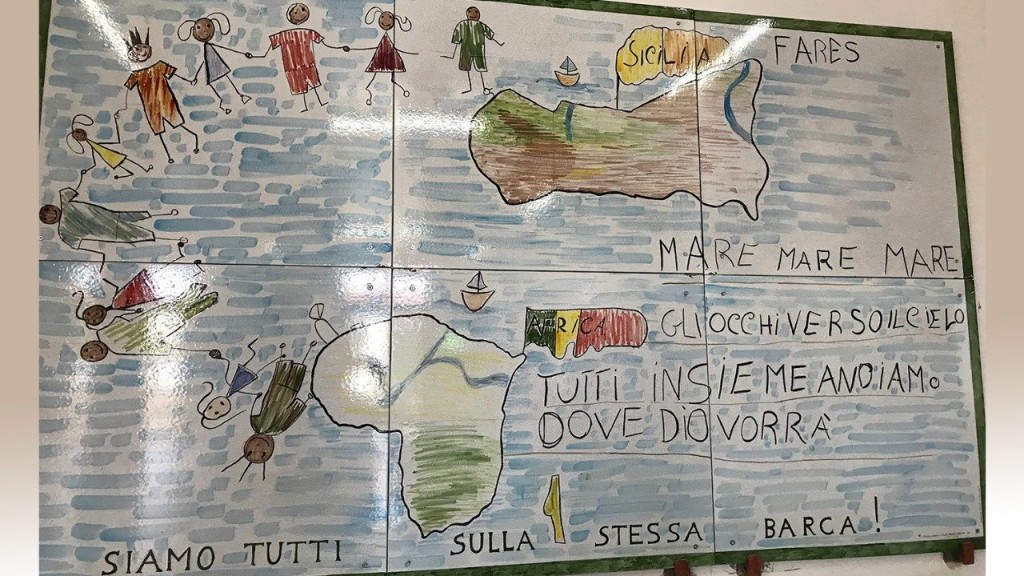 SICILIA
FARES
MARE MARE MARE
AFRICA
GLI OCCHI VERSO IL CIELO
TUTTI INSIEME ANDIAMO
DOVE DIO VORRÀ
SIAMO TUTTI SULLA STESSA BARCA!